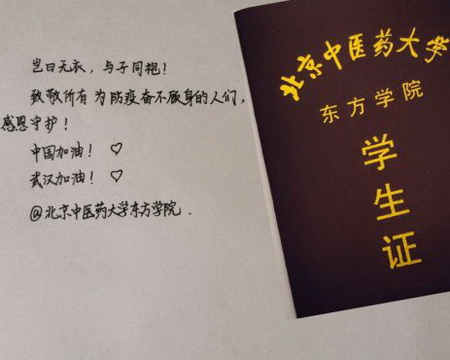 岂曰无衣，与子同袍！
致敬所有为防疫奋不顾身的人们，
感恩守护！
中国加油！♡
武汉加油！♡
@北京中医药大学东方学院.
北京中医药大学
东方学院
学生证